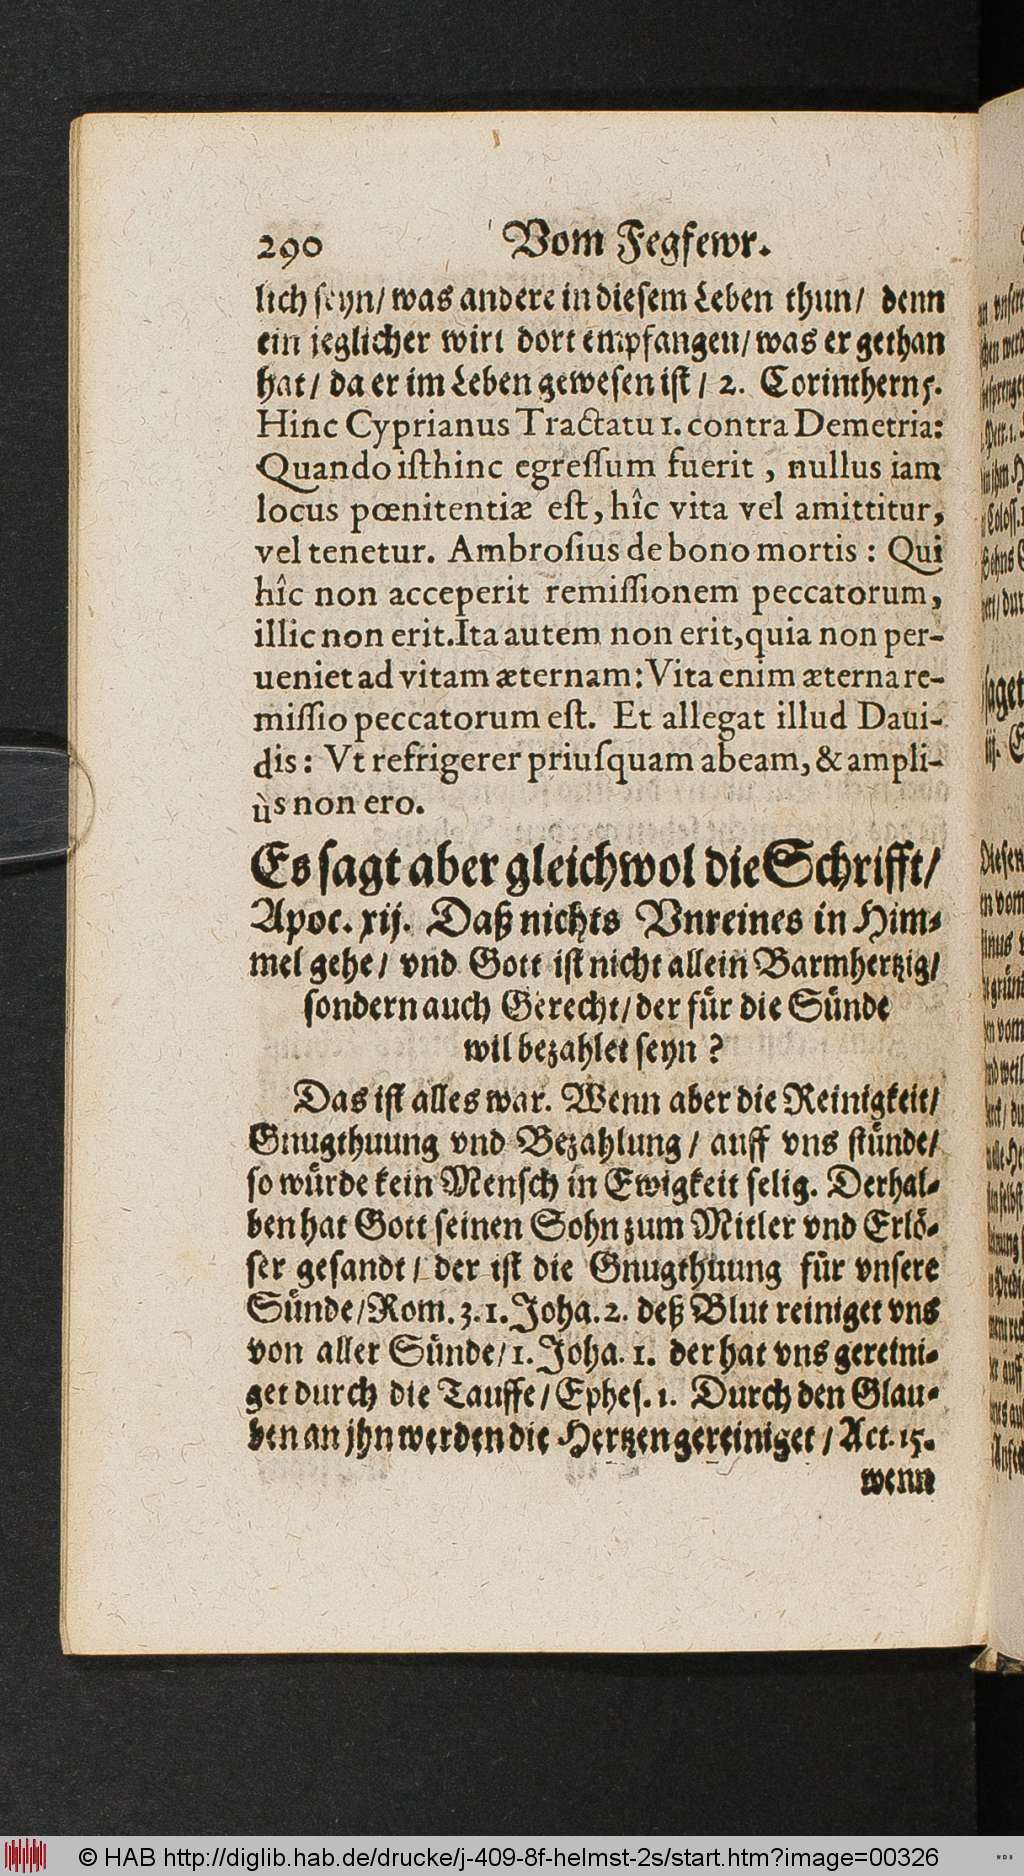 290 Vom Fegfewr.
lich seyn/ was andere in diesem Leben thun/ denn
ein jeglicher wirt dort empfangen/ was er gethan
hat/ da er im Leben gewesen ist/ 2. Corinthern 5.
Hinc Cyprianus Tractatu 1. contra Demetria:
Quando isthinc egreſſum fuerit, nullus iam
locus pœnitentiæ eſt, hîc vita vel amittitur,
vel tenetur. Ambroſius de bono mortis: Qui
hîc non acceperit remiſſionem peccatorum,
illic non erit. Ita autem non erit, quia non per-
ueniet ad vitam æternam: Vita enim æterna re-
miſſio peccatorum eſt. Et allegat illud Daui-
dis: Vt refrigerer priuſquam abeam, & ampli-
ùs non ero.
Es sagt aber gleichwol die Schrifft/
Apoc. xij. Daß nichts Vnreines in Him-
mel gehe/ vnd Gott ist nicht allein Barmhertzig/
sondern auch Gerecht/ der für die Sünde
wil bezahlet seyn?
Das ist alles war. Wenn aber die Reinigkeit/
Gnugthuung vnd Bezahlung/ auff vns stünde/
so würde kein Mensch in Ewigkeit selig. Derhal-
ben hat Gott seinen Sohn zum Mitler vnd Erlö-
ser gesandt/ der ist die Gnugthuung für vnsere
Sünde/ Rom. 3. 1. Joha. 2. deß Blut reiniget vns
von aller Sünde/ 1. Joha. 1. der hat vns gereini-
get durch die Tauffe/ Ephes. 1. Durch den Glau-
ben an jhn werden die Hertzen gereiniget/ Act. 15.
wenn
© HAB http://diglib.hab.de/drucke/j-409-8f-helmst-2s/start.htm?image=00326